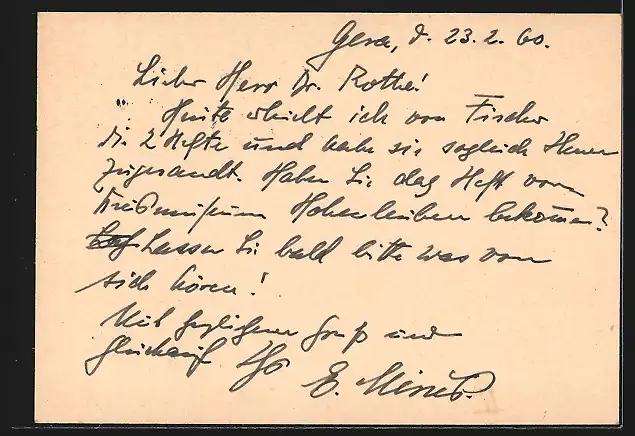 Gera, d. 23.2.60.
Lieber Herr Dr. Rothe!
Heute erhielt ich von Fischer
die 2 Hefte und habe sie sogleich Ihnen
zugesandt. Haben Sie das Heft vom
Kreismuseum Hohenleuben bekommen?
Lassen Sie bald bitte was von
sich hören!
Mit herzlichem Gruß und
Glückauf Ihr E.